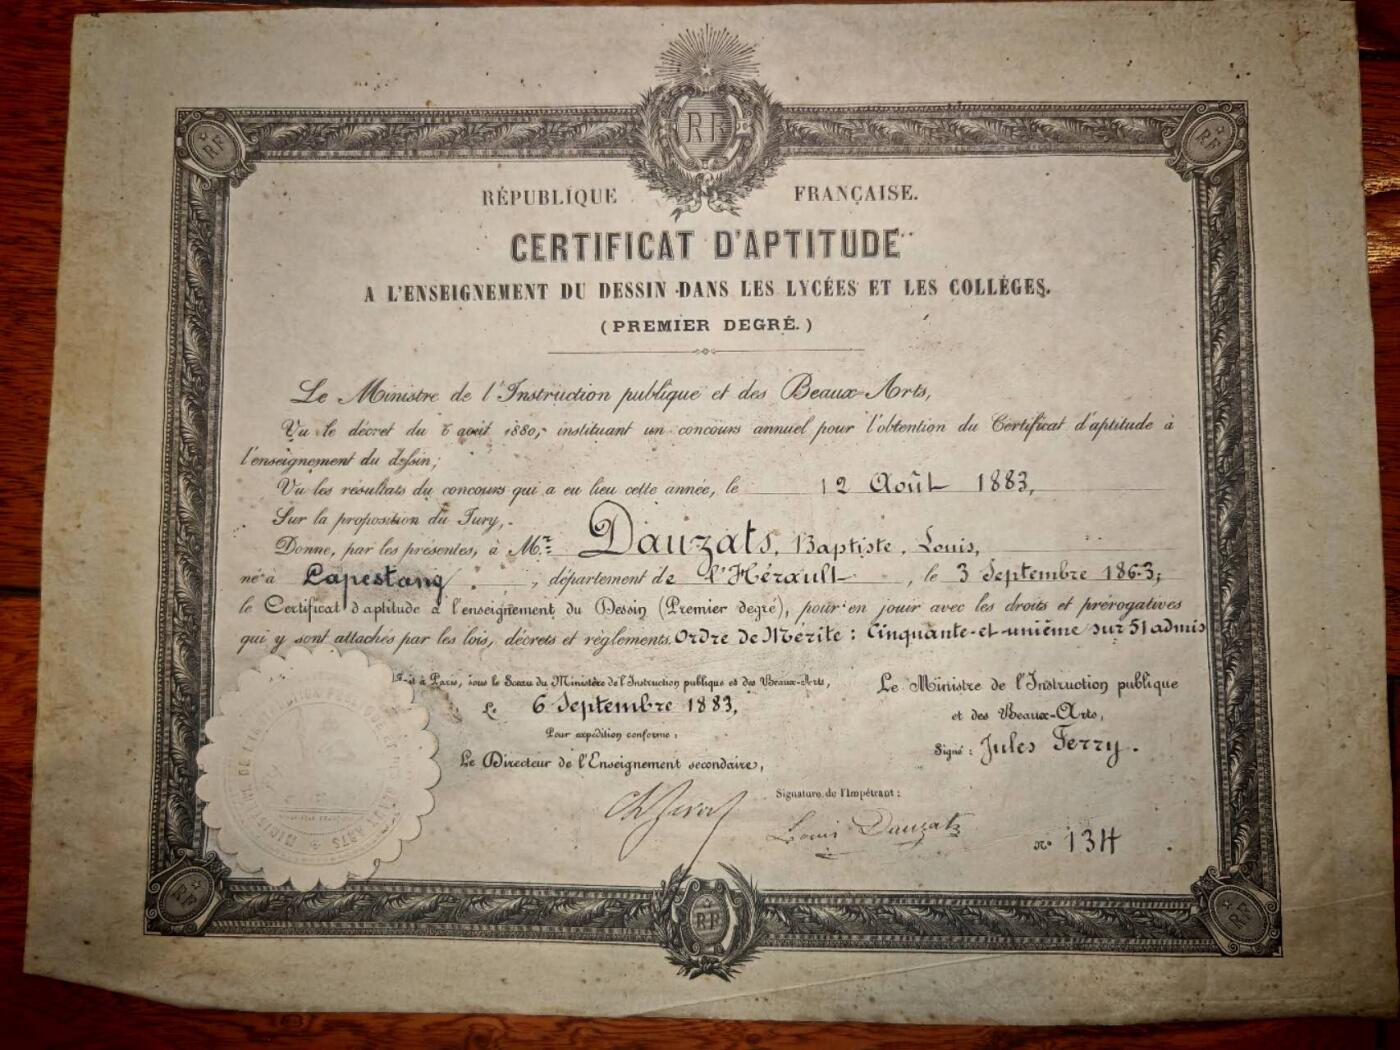 RF
RF
RF
RÉPUBLIQUE FRANÇAISE.
CERTIFICAT D'APTITUDE
A L'ENSEIGNEMENT DU DESSIN DANS LES LYCÉES ET LES COLLÉGES.
(PREMIER DEGRÉ.)
Le Ministre de l'Instruction publique et des Beaux-Arts,
Vu le décret du 6 août 1880, instituant un concours annuel pour l'obtention du Certificat d'aptitude à
l'enseignement du dessin;
Vu les résultats du concours qui a eu lieu cette année, le 12 Août 1883,
Sur la proposition du Jury,
Donne, par les présentes, à Mr. Dauzats, Baptiste, Louis,
né à Capestang, département de l'Hérault, le 3 Septembre 1863,
le Certificat d'aptitude à l'enseignement du Dessin (Premier degré), pour en jouir avec les droits et prérogatives
qui y sont attachés par les lois, décrets et règlements. Ordre de Mérite : Cinquante-et-unième sur 51 admis
Fait à Paris, sous le Sceau du Ministère de l'Instruction publique et des Beaux-Arts,
Le 6 Septembre 1883,
Pour expédition conforme :
Le Directeur de l'Enseignement secondaire,
Le Ministre de l'Instruction publique
et des Beaux-Arts,
Signé : Jules Ferry.
Signature de l'Impétrant :
Louis Dauzats
n° 134
RF
RF
RF